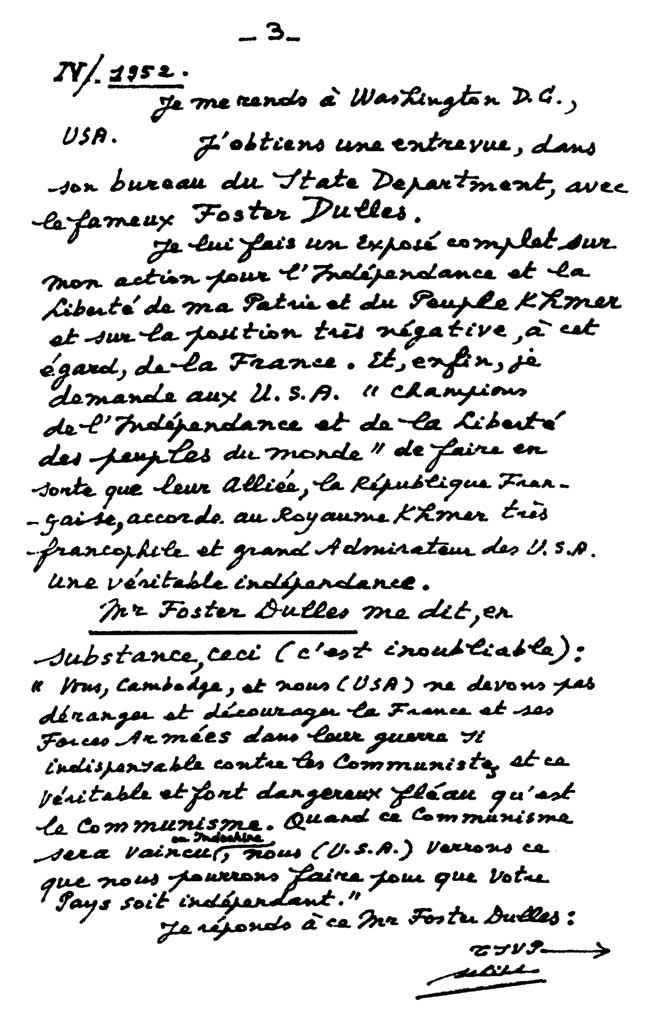 _ 3 _
IV/. 1952.
Je me rends à Washington D.C.,
USA. J'obtiens une entrevue, dans
son bureau du State Department, avec
le fameux Foster Dulles.
Je lui fais un Exposé complet sur
mon action pour l'Indépendance et la
Liberté de ma Patrie et du Peuple Khmer
et sur la position très négative, à cet
égard, de la France. Et, enfin, je
demande aux U.S.A. "champions
de l'Indépendance et de la Liberté
des peuples du monde" de faire en
sorte que leur Alliée, la République Fran-
-çaise, accorde au Royaume Khmer très
francophile et grand Admirateur des U.S.A.
une véritable indépendance.
Mr Foster Dulles me dit, en
substance, ceci (c'est inoubliable) :
" Vous, Cambodge, et nous (USA) ne devons pas
déranger et décourager la France et ses
Forces Armées dans leur guerre si
indispensable contre les Communistes et ce
véritable et fort dangereux fléau qu'est
le Communisme. Quand ce Communisme
sera vaincu en Indochine, nous (U.S.A.) verrons ce
que nous pourrons faire pour que votre
Pays soit indépendant."
Je réponds à ce Mr Foster Dulles :
TSVP→